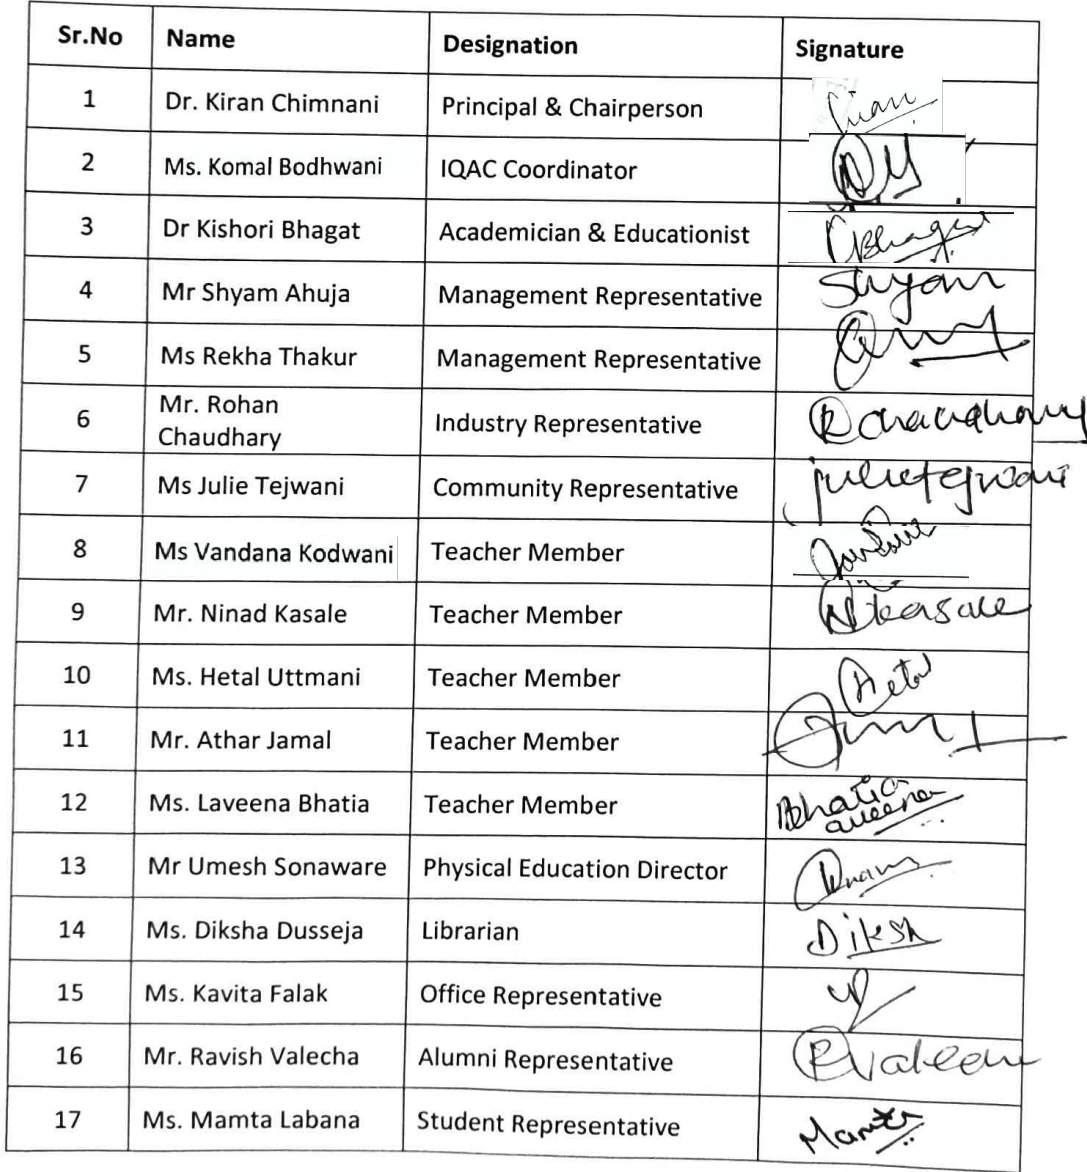 Sr.No Name Designation Signature
1 Dr. Kiran Chimnani Principal & Chairperson
2 Ms. Komal Bodhwani IQAC Coordinator
3 Dr Kishori Bhagat Academician & Educationist
4 Mr Shyam Ahuja Management Representative Shyam
5 Ms Rekha Thakur Management Representative
6 Mr. Rohan
Chaudhary Industry Representative RChaudhary
7 Ms Julie Tejwani Community Representative julietejwani
8 Ms Vandana Kodwani Teacher Member
9 Mr. Ninad Kasale Teacher Member NKasale
10 Ms. Hetal Uttmani Teacher Member Hetal
11 Mr. Athar Jamal Teacher Member
12 Ms. Laveena Bhatia Teacher Member Bhatia
13 Mr Umesh Sonaware Physical Education Director
14 Ms. Diksha Dusseja Librarian Diksh
15 Ms. Kavita Falak Office Representative
16 Mr. Ravish Valecha Alumni Representative
17 Ms. Mamta Labana Student Representative